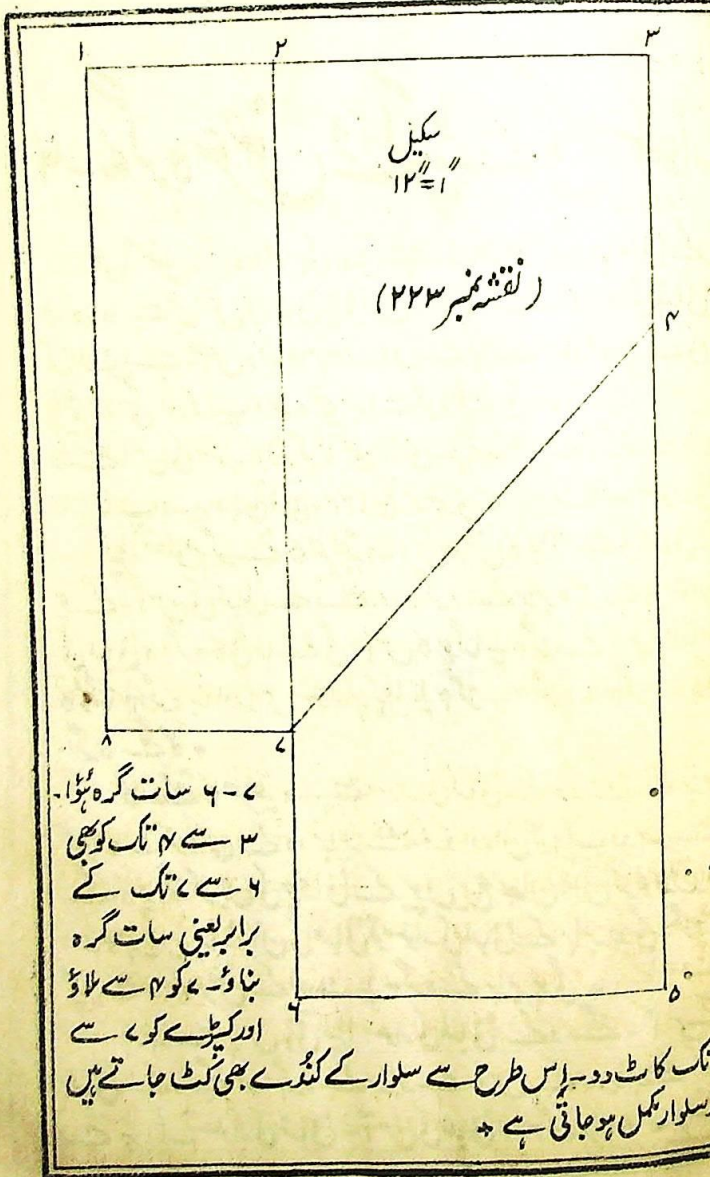 ۱ ۲ ۳
سکیل
۱۲″=۱″
(نقشہ نمبر ۲۲۳)
۴
۸ ۷
۷-۶ سات گرہ ہؤا۔
۳ سے ۴ تک کو بھی
۶ سے ۷ تک کے
برابر یعنی سات گرہ
بناؤ۔ ۷ کو ۴ سے ملاؤ
۶ ۵
اور کپڑے کو ۷ سے
تک کاٹ دو۔ اِس طرح سے سلوار کے کُندے بھی کٹ جاتے ہیں
سلوار مکمل ہو جاتی ہے ٭